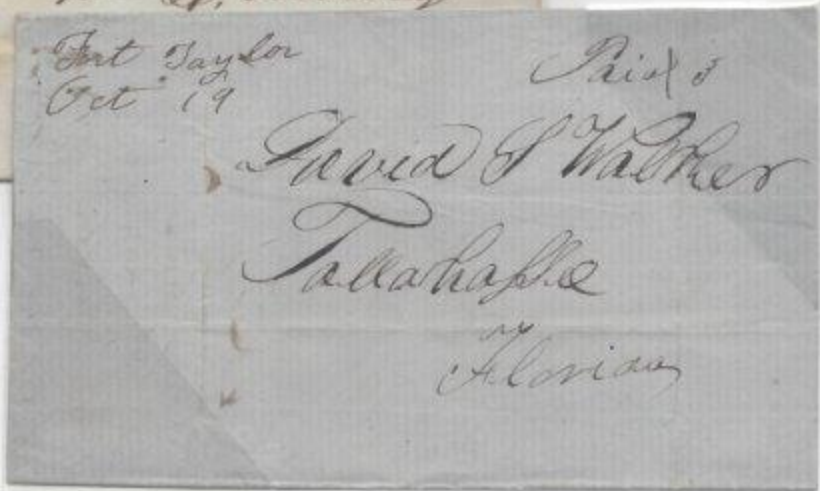 Fort Taylor
Oct 19
Paid 3
David S Walker
Tallahassee
Florida